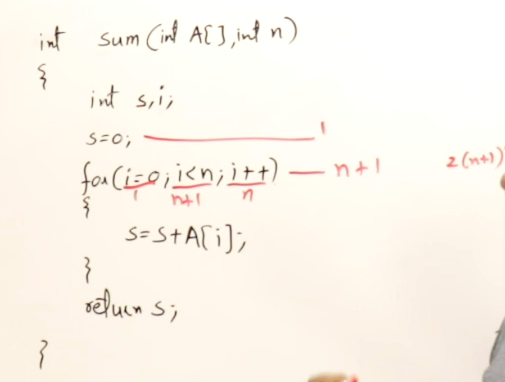 int sum(int A[],int n)
{
int s,i;
s=0; 1
for(i=0;i<n;i++) n+1 2(n+1)
1 n+1 n
{
s=s+A[i];
}
return s;
}